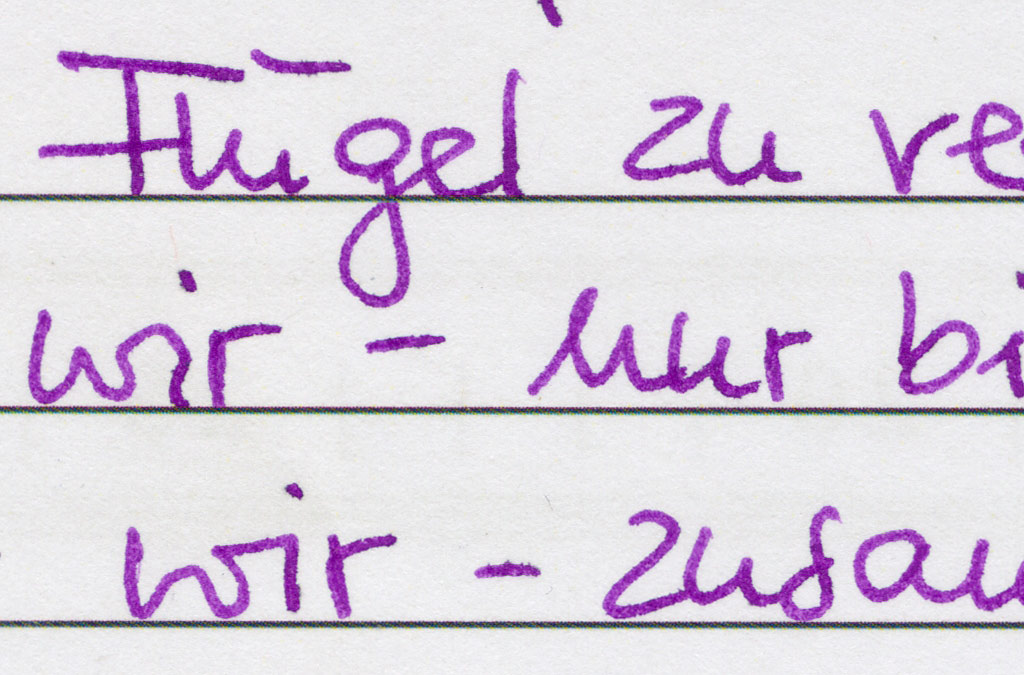 Flügel zu ve
wir – nur bi
wir – zusam